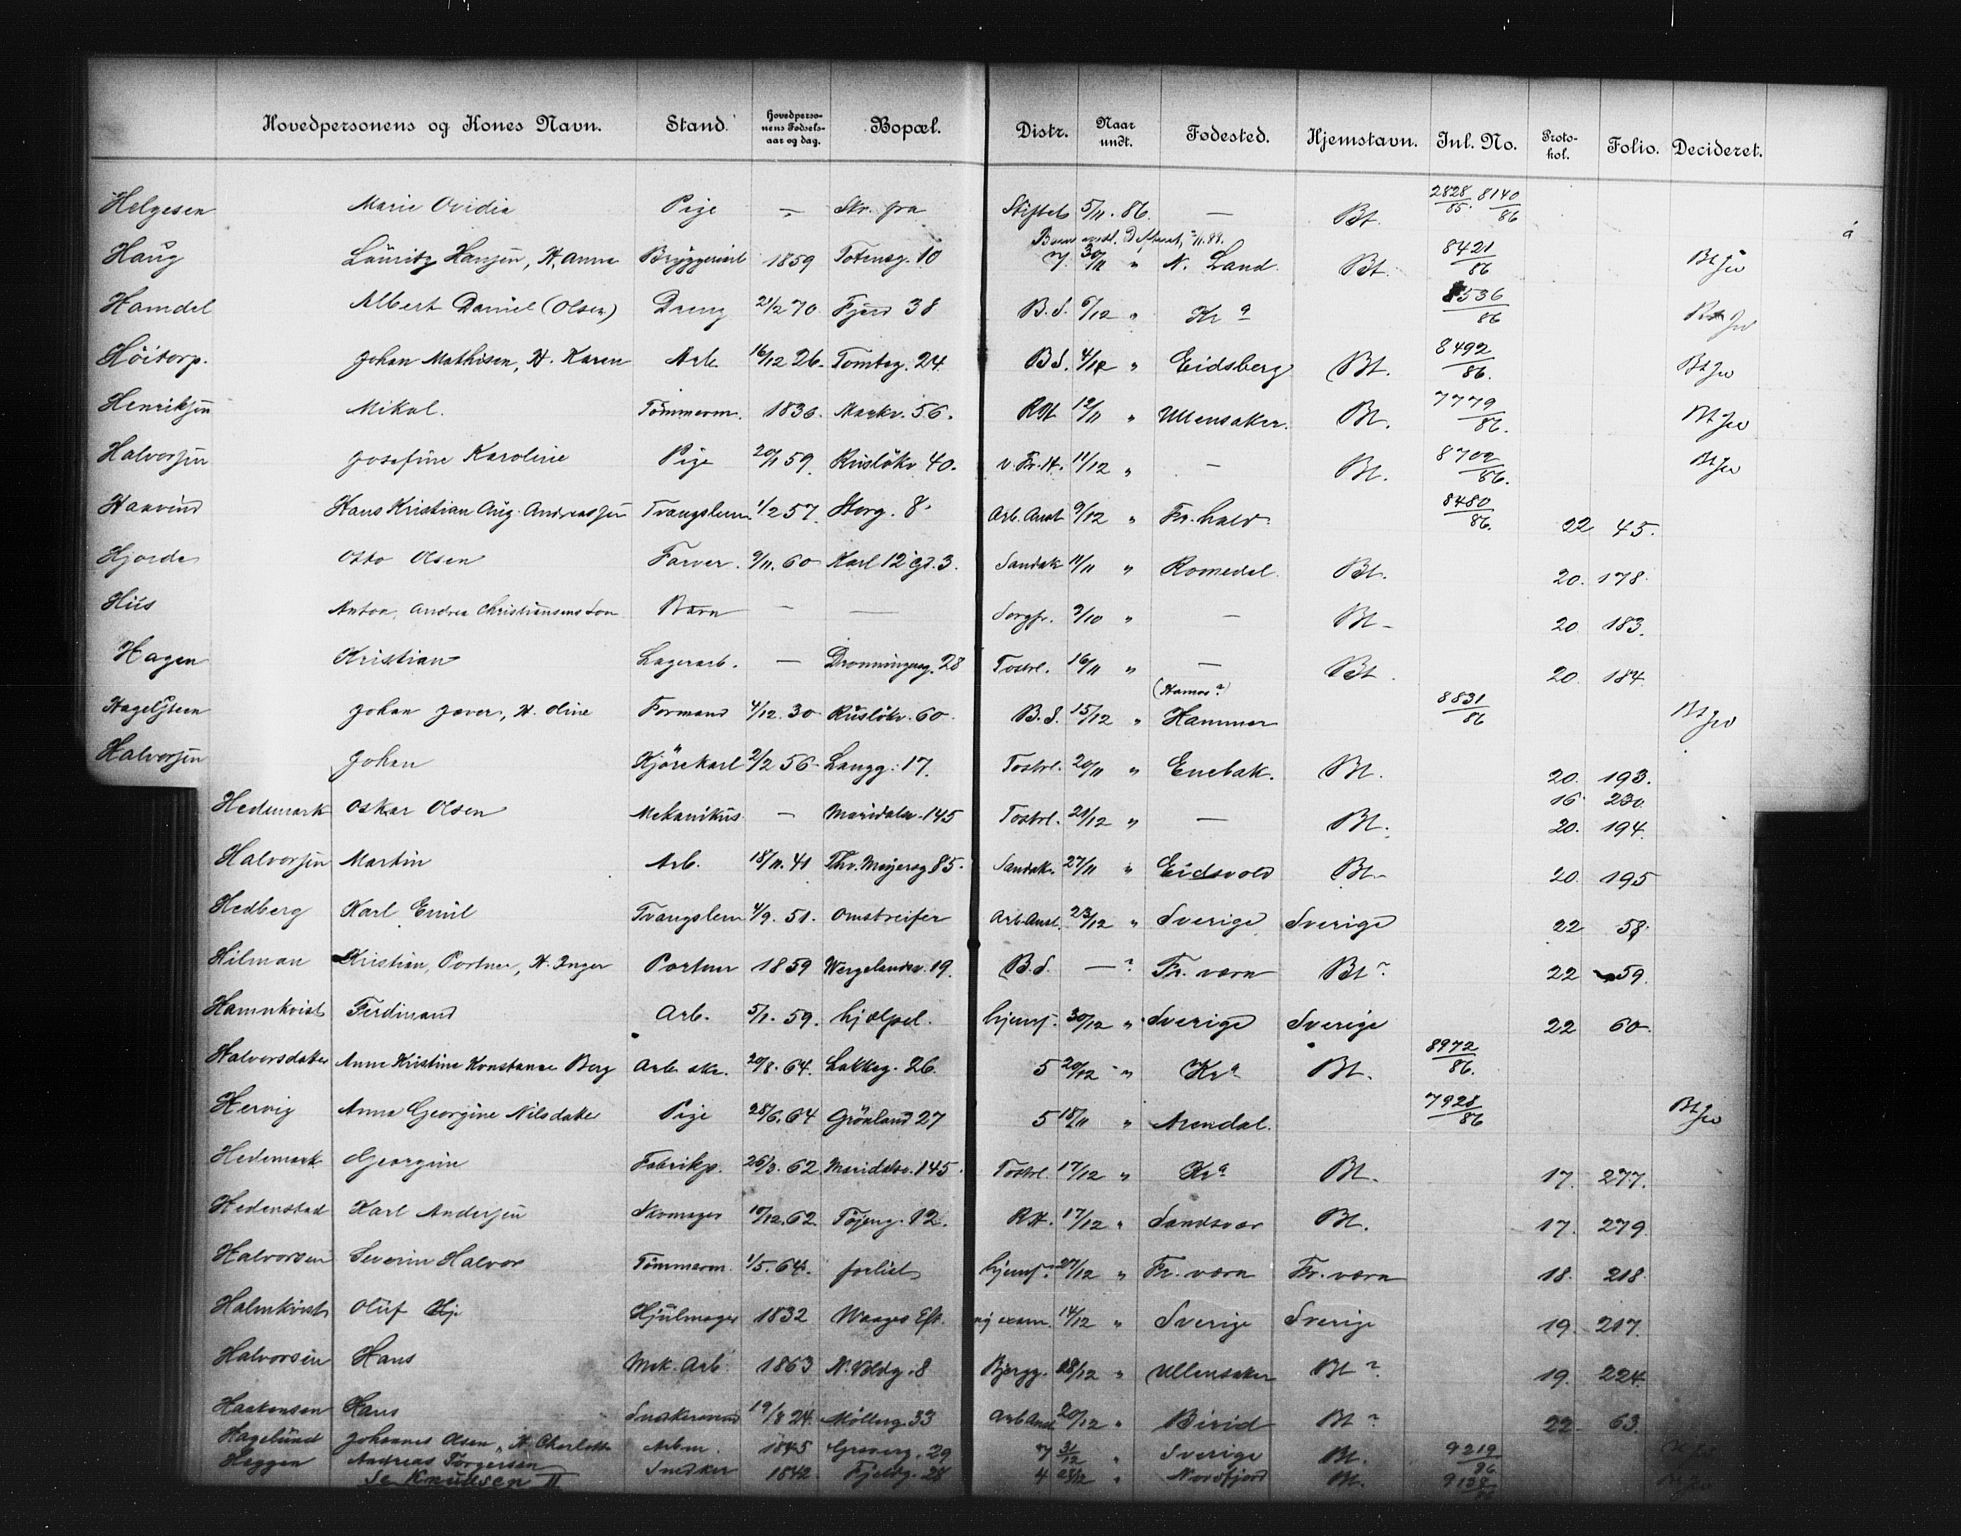 Hovedpersonens og Kones Navn. Stand. Hovedperso-nens Fødsels-aar og dag. Bopæl. Distr. Naar undt. Fødested. Hjemstavn. Inl. No. Proto-kol. Folio. Decideret.
Helgesen Marie Ovidia Pige — Str. fra Stiftels 5/11. 86. — Bt. 2828/85. 8140/86
Haug Lauritz Hansen, H. Anna Bryggeriarb 1859 Totensg. 10 7. 30/11 " N. Land. Bt. 8421/86 Bt
Hamdal Albert Daniel (Olsen) Dreng 21/2 70 Fjerd 38 B.S. 6/12 " Kr a 8536/86
Höitorp. Johan Mathisen, H. Karen Arb. 16/12 26. Tomteg. 24 B.S. 4/12 " Eidsberg Bt. 8492/86. Bt
Henriksen Mikal. Tömmerm. 1836. Markv. 56. RH 12/11 " Ullensaker. Bt. 7779/86. Bt
Halvorsen Josefine Karoline Pige 20/1 59. Rusløkv 40. v Fr. H. 11/12 " — Bt. 8702/86. Bt
Haavind Hans Kristian Aug. Andreassen Tvangslem 1/2 57. Storg. 8. Arb. Anst 9/12 " Fr.hald. 8480/86. 22 45.
Hjorde Otto Olsen Farver. 9/11. 60 Karl 12 gt. 3. Sandak 11/11 " Romedal. Bt. 20. 178.
Hiis Anton, Andrea Christiansens Søn Barn — — Sorgfr. 9/10 " — Bt. 20 183.
Hagen Kristian Lagerarb. — Dronningensg. 28 Tostrl. 16/11 " — Bt. 20. 184.
Hagelsteen Johan Javer, H. Oline Formand 4/12. 30 Rusløkv. 60. B.S. 15/12 " (Hamar?) Hammer 8831/86 Bt
Halvorsen Johan Kjörekarl 2/2 56. Langg. 17. Tostrl. 20/11 " Enebak. Bt. 20. 193.
Hedemark Oskar Olsen Mekanikus — Maridalsv. 145 Tostrl. 21/12 " — Bt. 16. 230. 20. 194.
Halvorsen Martin Arb. 18/11. 41 Thv. Meyersg 85. Sandak. 27/11 " Eidsvold Bt. 20. 195
Hedberg Karl Emil Tvangslem 4/9. 51. Omstreifer Arb.Anst. 23/12 " Sverige Sverige 22 58.
Hilman Kristian, Portner, H. Inger Portner 1859 Wergelandsv. 19. B.S. —? Fr. værn Bt? 22 59.
Hamnkvist Ferdinand Arb. 5/1. 59. hjælpel. hjemf. 30/12 " Sverige Sverige 22 60.
Halvorsdatter Anne Kristine Konstanse Berg Arb. ske. 20/8. 64. Lakkeg. 26. 5 20/12 " Kr a Bt. 8972/86.
Hervig Anna Georgine Nilsdatter Pige 28/6. 64 Grönland 27 5 18/11 " Arendal. 7928/86 Bt
Hedemark Georgine Fabrikp. 26/3. 62 Maridalsv. 145. Tostrl. 17/12 " Kr a Bt. 17. 277.
Hedenstad Karl Andersen Skomager 10/12. 62. Töjeng. 12. RH. 17/12 " Sandsvær Bt. 17. 279.
Halvorsen Severin Halvor Tömmerm. 1/5. 64. forlist hjemf. 27/12 " Fr. værn Fr. værn 18. 218.
Halmkvist Oluf Hjulmager 1832 Waages Eft. 14/12 " Sverige Sverige 19. 217.
Halvorsen Hans Mek. Arb. 1863 N. Voldg. 8 Bjergg. 28/12 " Ullensaker Bt? 19. 224.
Haakensen Hans Snekkersvend 19/8 24. Mölleng 33 Arb Anst 20/12 " Birid Bt? 22 63.
Hagelund Johannes Olsen, H. Charlotte Arbm. 1845 29 7 31/12 " Sverige Bt. 9219/86
Heggen Andreas Torgersen Snedker 1842. Fjeldg. 28 4 " Nordfjord Bt. 9138/86
Se Knudsen II